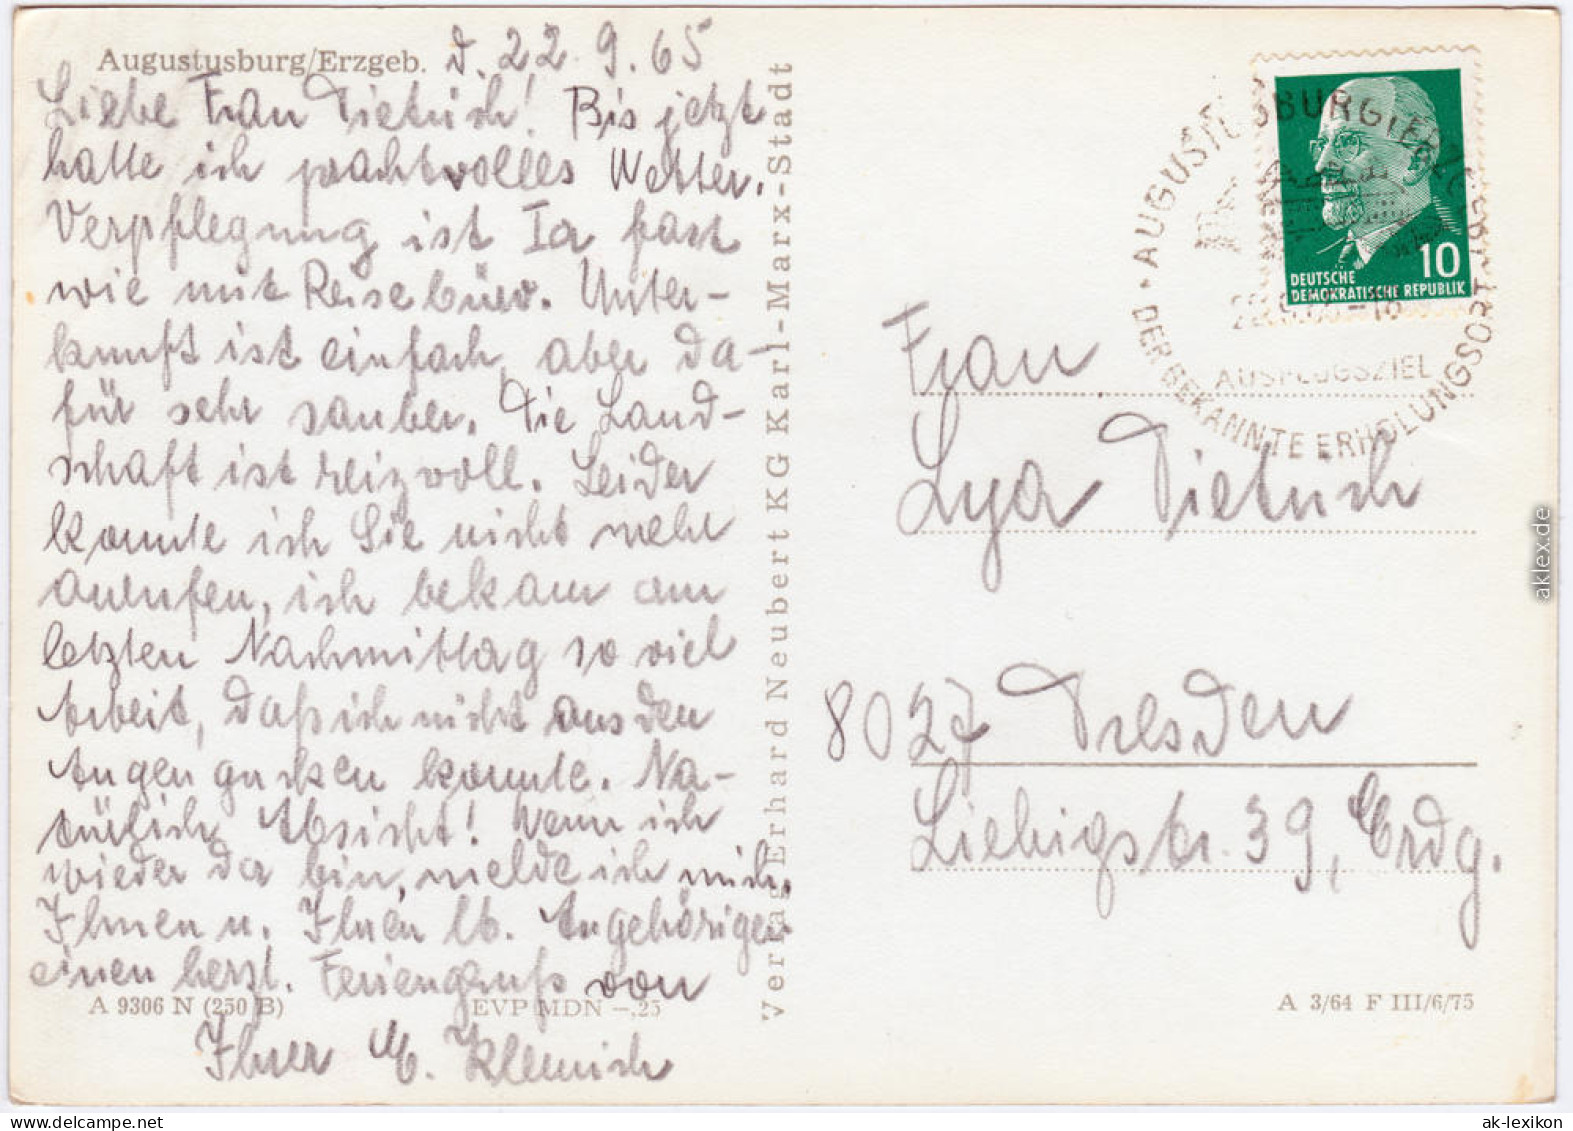 Augustusburg/Erzgeb. d. 22.9.65
Liebe Frau Dietrich! Bis jetzt
hatte ich prachtvolles Wetter.
Verpflegung ist Ia fast
wie mit Reisebüro. Unter-
kunft ist einfach, aber da-
für sehr sauber. Die Land-
schaft ist reizvoll. Leider
konnte ich Sie nicht mehr
anrufen, ich bekam am
letzten Nachmittag so viel
Arbeit, daß ich nicht aus den
Augen gucken konnte. Na-
türlich Absicht! Wenn ich
wieder da bin, melde ich mich.
Ihnen u. Ihren lb. Angehörigen
einen herzl. Feriengruß von
Ihrer E. Klemich
A 9306 N (250 B) EVP MDN -,25
Verlag Erhard Neubert KG Karl-Marx-Stadt
AUGUSTUSBURG (ERZGEB)
DER BEKANNTE ERHOLUNGSORT
AUSFLUGSZIEL
10
DEUTSCHE
DEMOKRATISCHE REPUBLIK
Frau
Lya Dietrich
8027 Dresden
Liebigstr. 39, Erdg.
A 3/64 F III/6/75
aklex.de
ak-lexikon